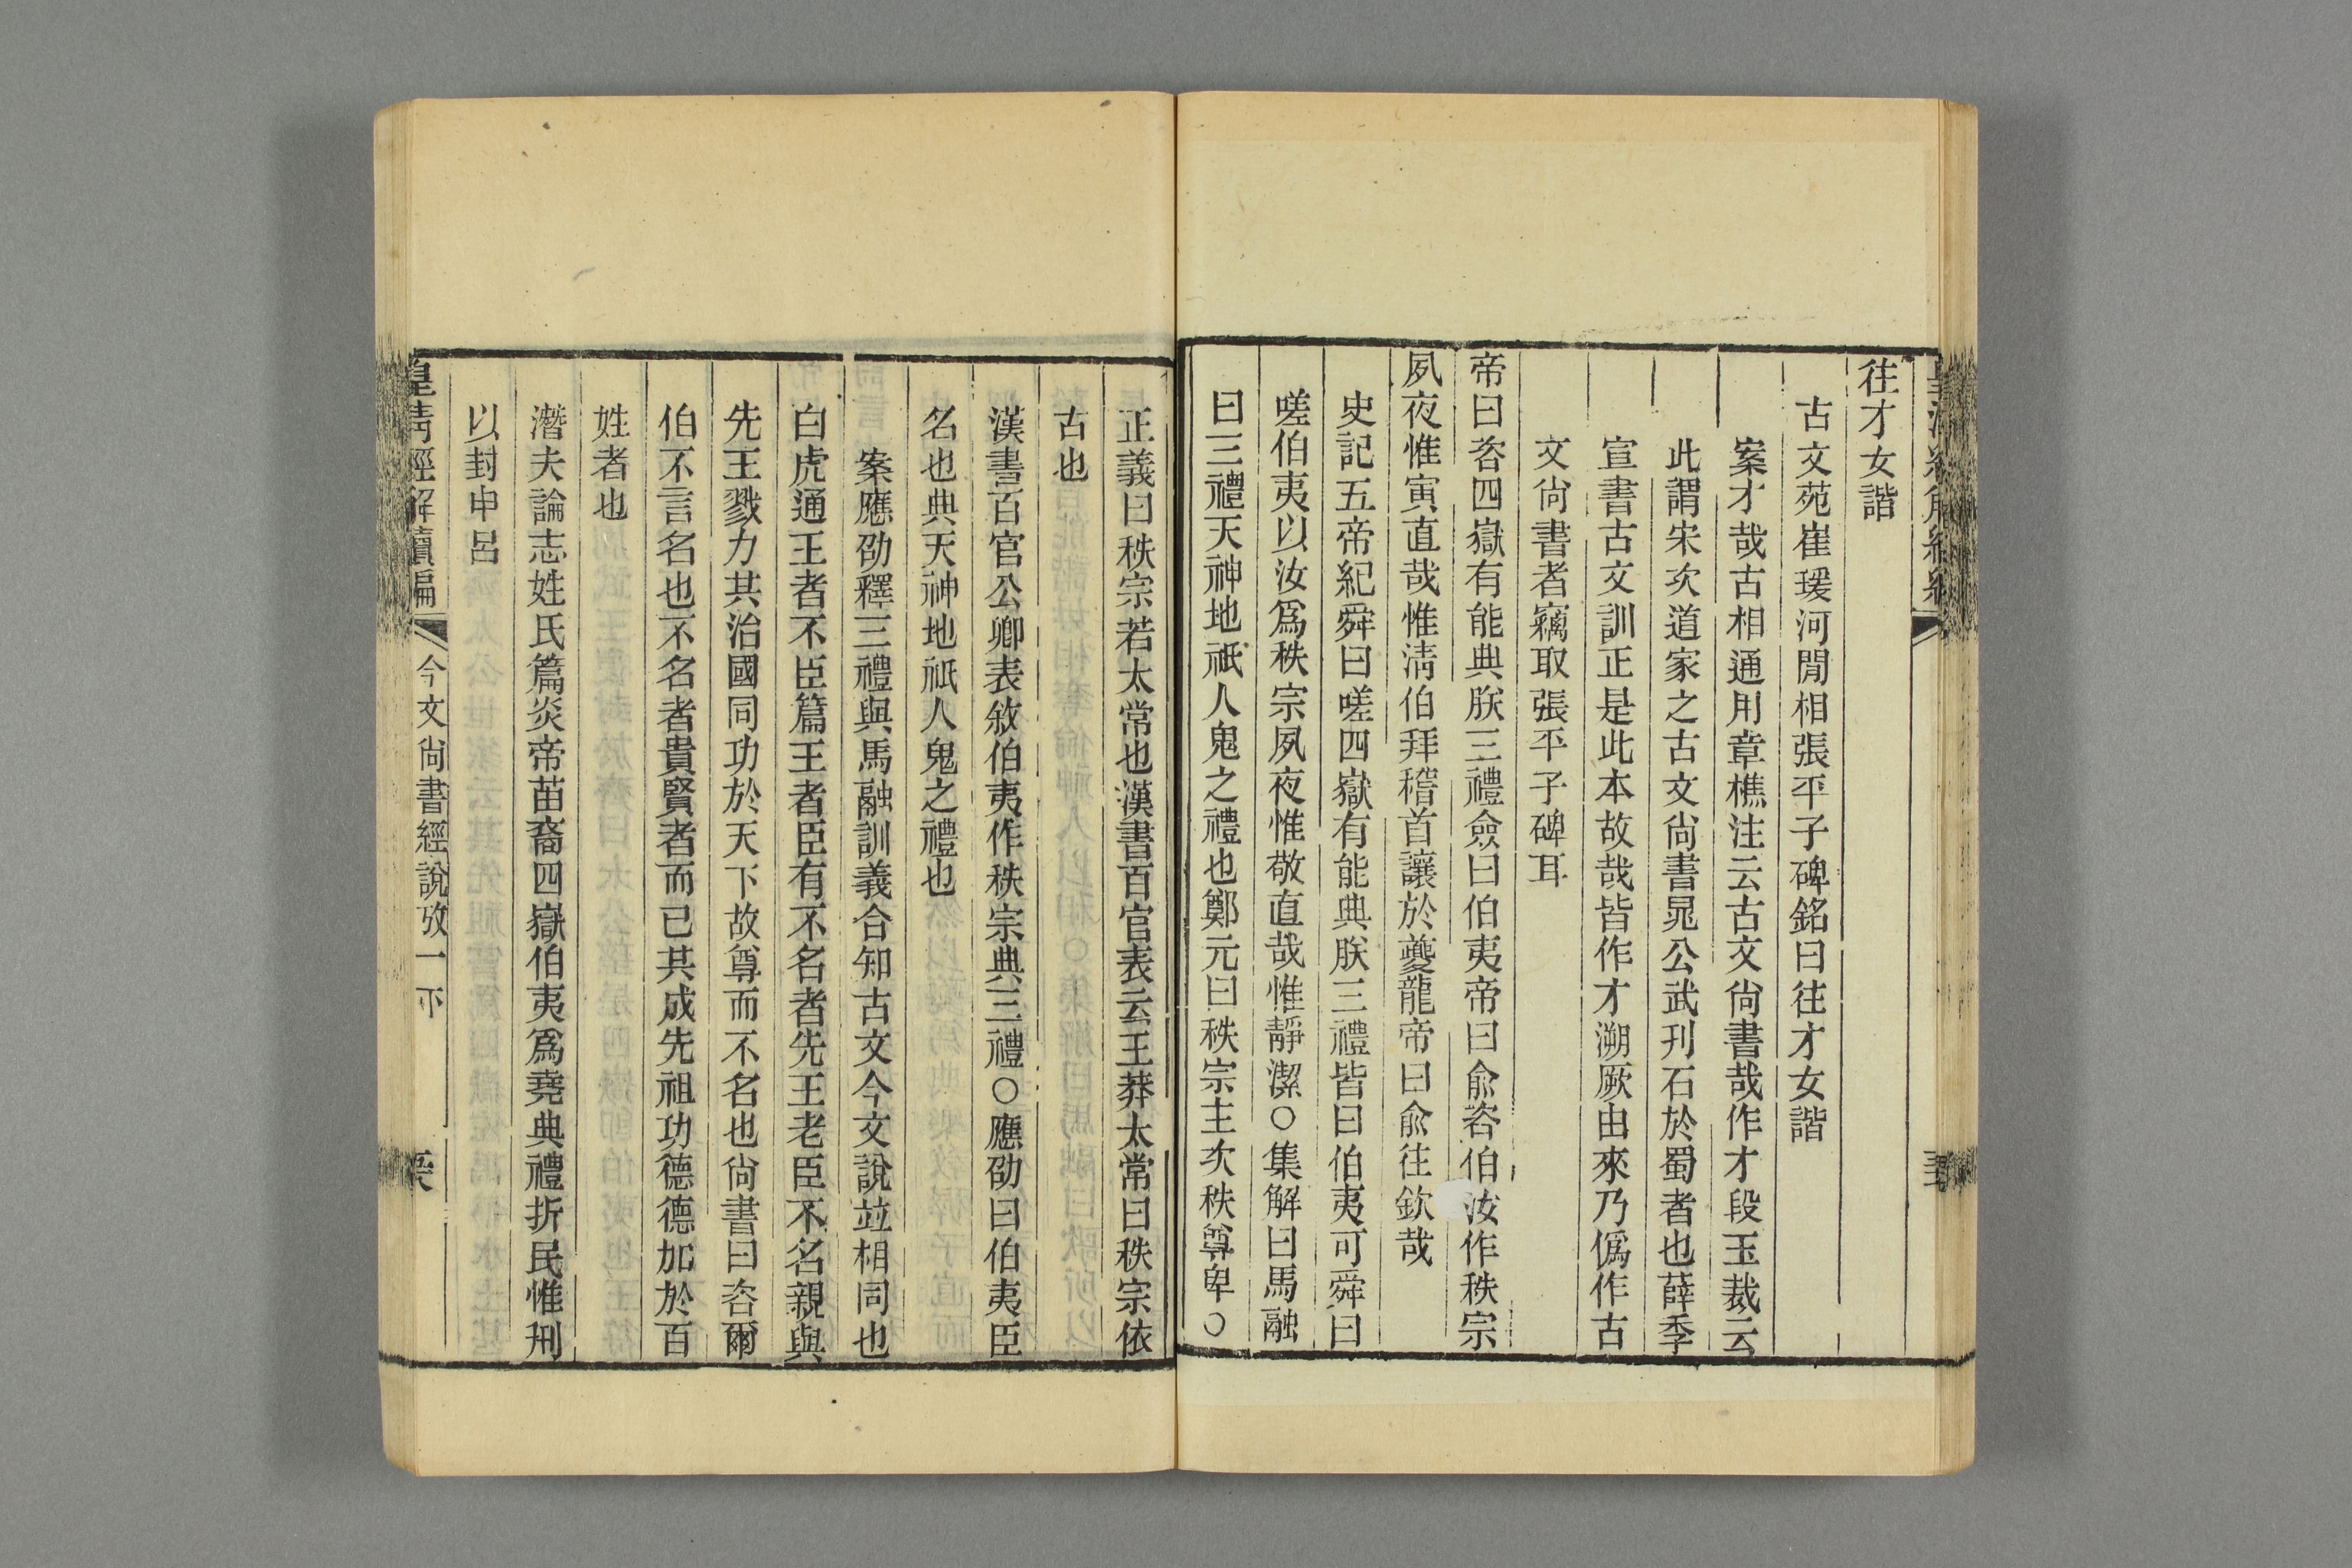 往才女諧
古文苑崔瑗河閒相張平子碑銘曰往才女諧
案才哉古相通用章樵注云古文尙書哉作才段玉裁云
此謂宋次道家之古文尙書晁公武刋石於蜀者也薛季
宣書古文訓正是此本故哉皆作才溯厥由來乃僞作古
文尙書者竊取張平子碑耳
帝曰咨四嶽有能典朕三禮僉曰伯夷帝曰兪咨伯汝作秩宗
夙夜惟寅直哉惟淸伯拜稽首讓於夔龍帝曰兪往欽哉
史記五帝紀舜曰嗟四嶽有能典朕三禮皆曰伯夷可舜曰
嗟伯夷以汝爲秩宗夙夜惟敬直哉惟靜潔○集解曰馬融
曰三禮天神地祇人鬼之禮也鄭元曰秩宗主次秩尊卑○
正義曰秩宗若太常也漢書百官表云王莽太常曰秩宗依
古也
漢書百官公卿表敘伯夷作秩宗典三禮○應劭曰伯夷臣
名也典天神地祇人鬼之禮也
案應劭釋三禮與馬融訓義合知古文今文說並相同也
白虎通王者不臣篇王者臣有不名者先王老臣不名親與
先王戮力其治國同功於天下故尊而不名也尙書曰咨爾
伯不言名也不名者貴賢者而已共成先祖功德德加於百
姓者也
潛夫論志姓氏篇炎帝苗裔四嶽伯夷爲堯典禮折民惟刑
以封申呂
皇淸經解續編
今文尙書經說攷一下